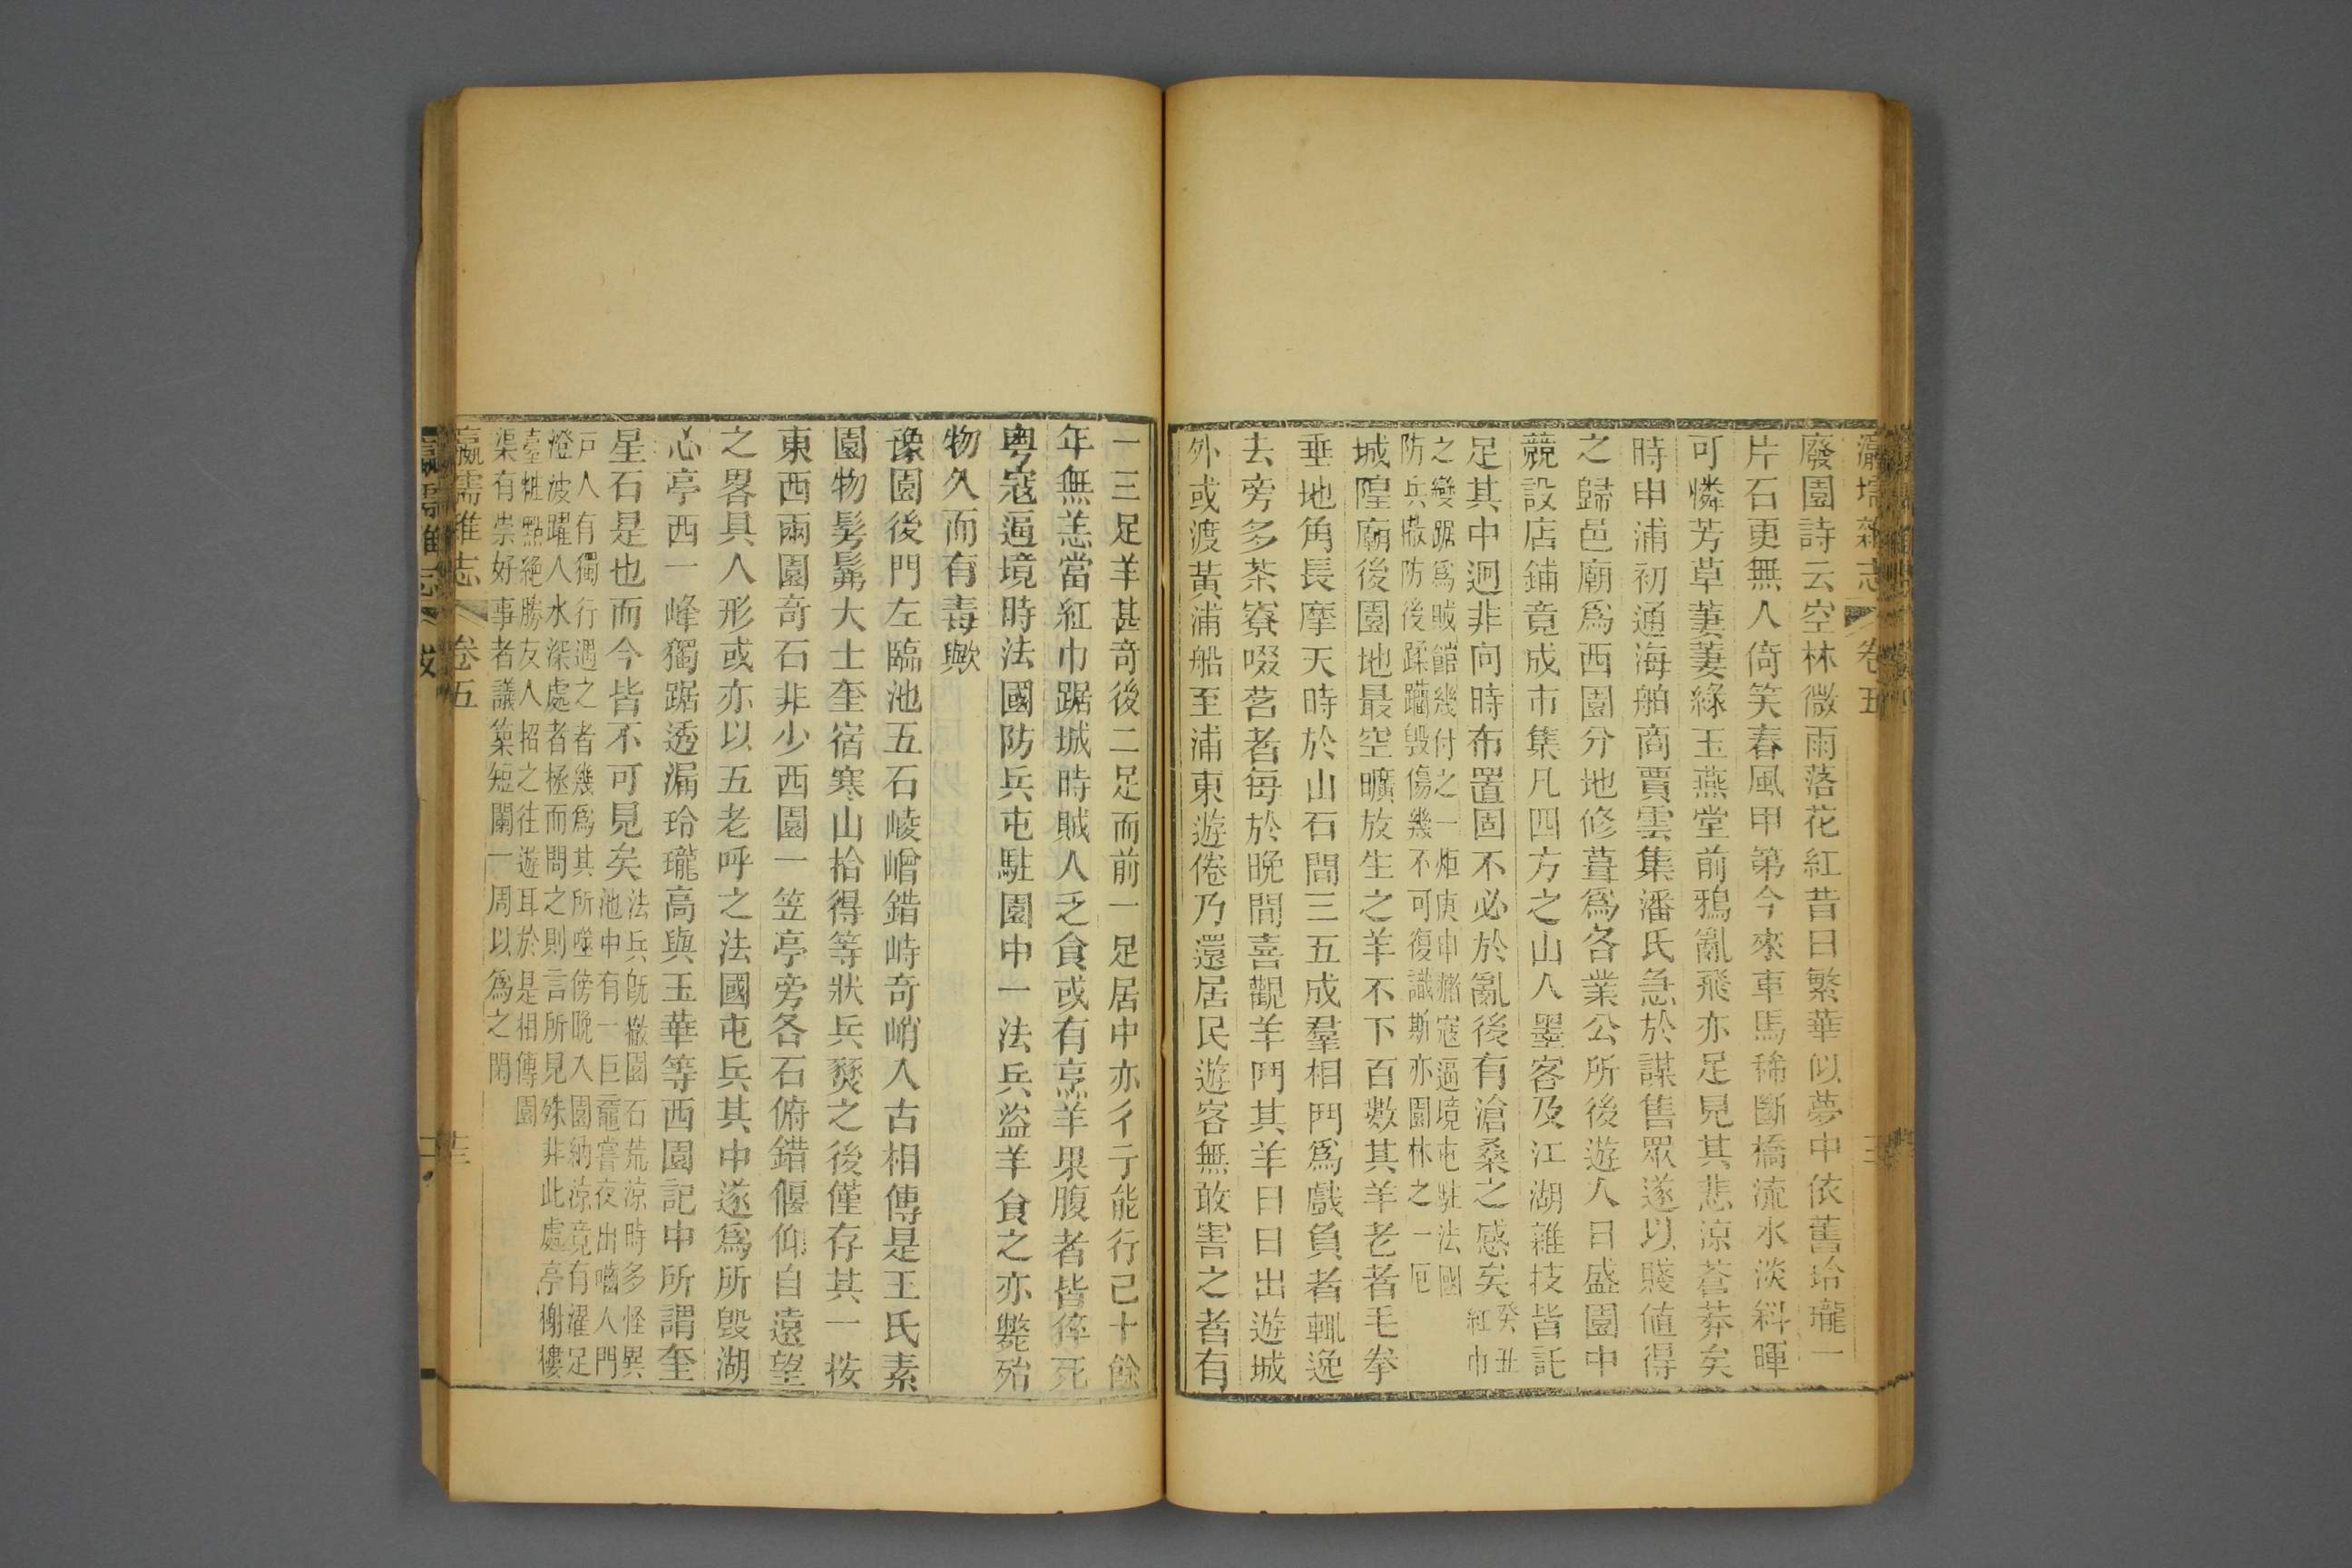 瀛壖雜志 卷五
廢園詩云空林微雨落花紅昔日繁華似夢中依舊玲瓏一
片石更無人倚笑春風甲第今來車馬稀斷橋流水淡斜暉
可憐芳草萋萋綠玉燕堂前鴉亂飛亦足見其悲涼蒼莽矣
時申浦初通海舶商賈雲集潘氏急於謀售眾遂以賤値得
之歸邑廟爲西園分地修葺爲各業公所後遊人日盛園中
競設店鋪竟成市集凡四方之山人墨客及江湖雜技皆託
足其中迥非向時布置固不必於亂後有滄桑之感矣癸丑紅巾
之變踞爲賊館幾付之一炬庚申粵寇逼境屯駐法國
防兵撤防後蹂躪毀傷幾不可復識斯亦園林之一厄
城隍廟後園地最空曠放生之羊不下百數其羊老者毛拳
垂地角長摩天時於山石間三五成羣相鬥爲戲負者輒逸
去旁多茶寮啜茗者每於晚間喜觀羊鬥其羊日日出遊城
外或渡黃浦船至浦東遊倦乃還居民遊客無敢害之者有
一三足羊甚奇後二足而前一足居中亦彳亍能行已十餘
年無恙當紅巾踞城時賊人乏食或有烹羊果腹者皆倅死
粵寇逼境時法國防兵屯駐園中一法兵盜羊食之亦斃殆
物久而有毒歟
豫園後門左臨池五石崚嶒錯峙奇峭入古相傳是王氏素
園物髣髴大士奎宿寒山拾得等狀兵燹之後僅存其一按
東西兩園奇石非少西園一笠亭旁各石俯錯偃仰自遠望
之畧具人形或亦以五老呼之法國屯兵其中遂爲所毀湖
心亭西一峰獨踞透漏玲瓏高與玉華等西園記中所謂奎
星石是也而今皆不可見矣法兵既撤園石荒涼時多怪異
池中有一巨黿嘗夜出嚙人門
戶人有獨行遇之者幾爲其所噬傍晚入園納涼竟有濯足
澄波躍人水深處者極而問之則言所見殊非此處亭榭樓
臺粧點絕勝友人招之往遊耳於是相傳園
渠有祟好事者議築短闌一周以爲之閑
瀛壖雜志 卷五